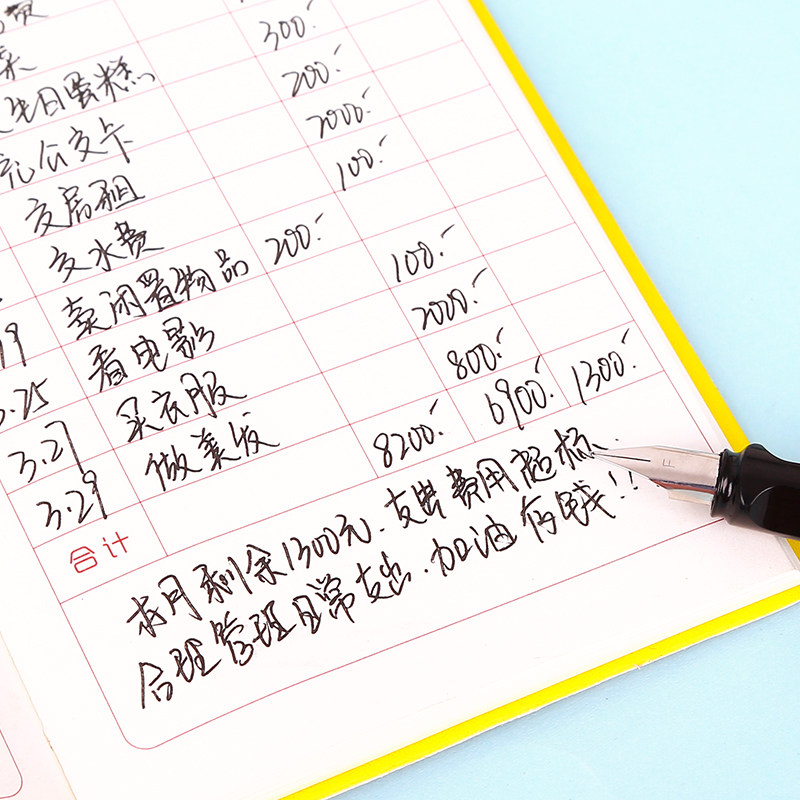 费
菜
生日蛋糕 300.
充公交卡 200.
交房租 2000.
交水费 100.
19 卖闲置物品 200.
3.25 看电影 100.
3.27 买衣服 2000.
3.29 做美发 800.
合计 8200. 6900. 1300.
本月剩余1300元.支出费用超标.
合理管理日常支出.加油存钱!!
F